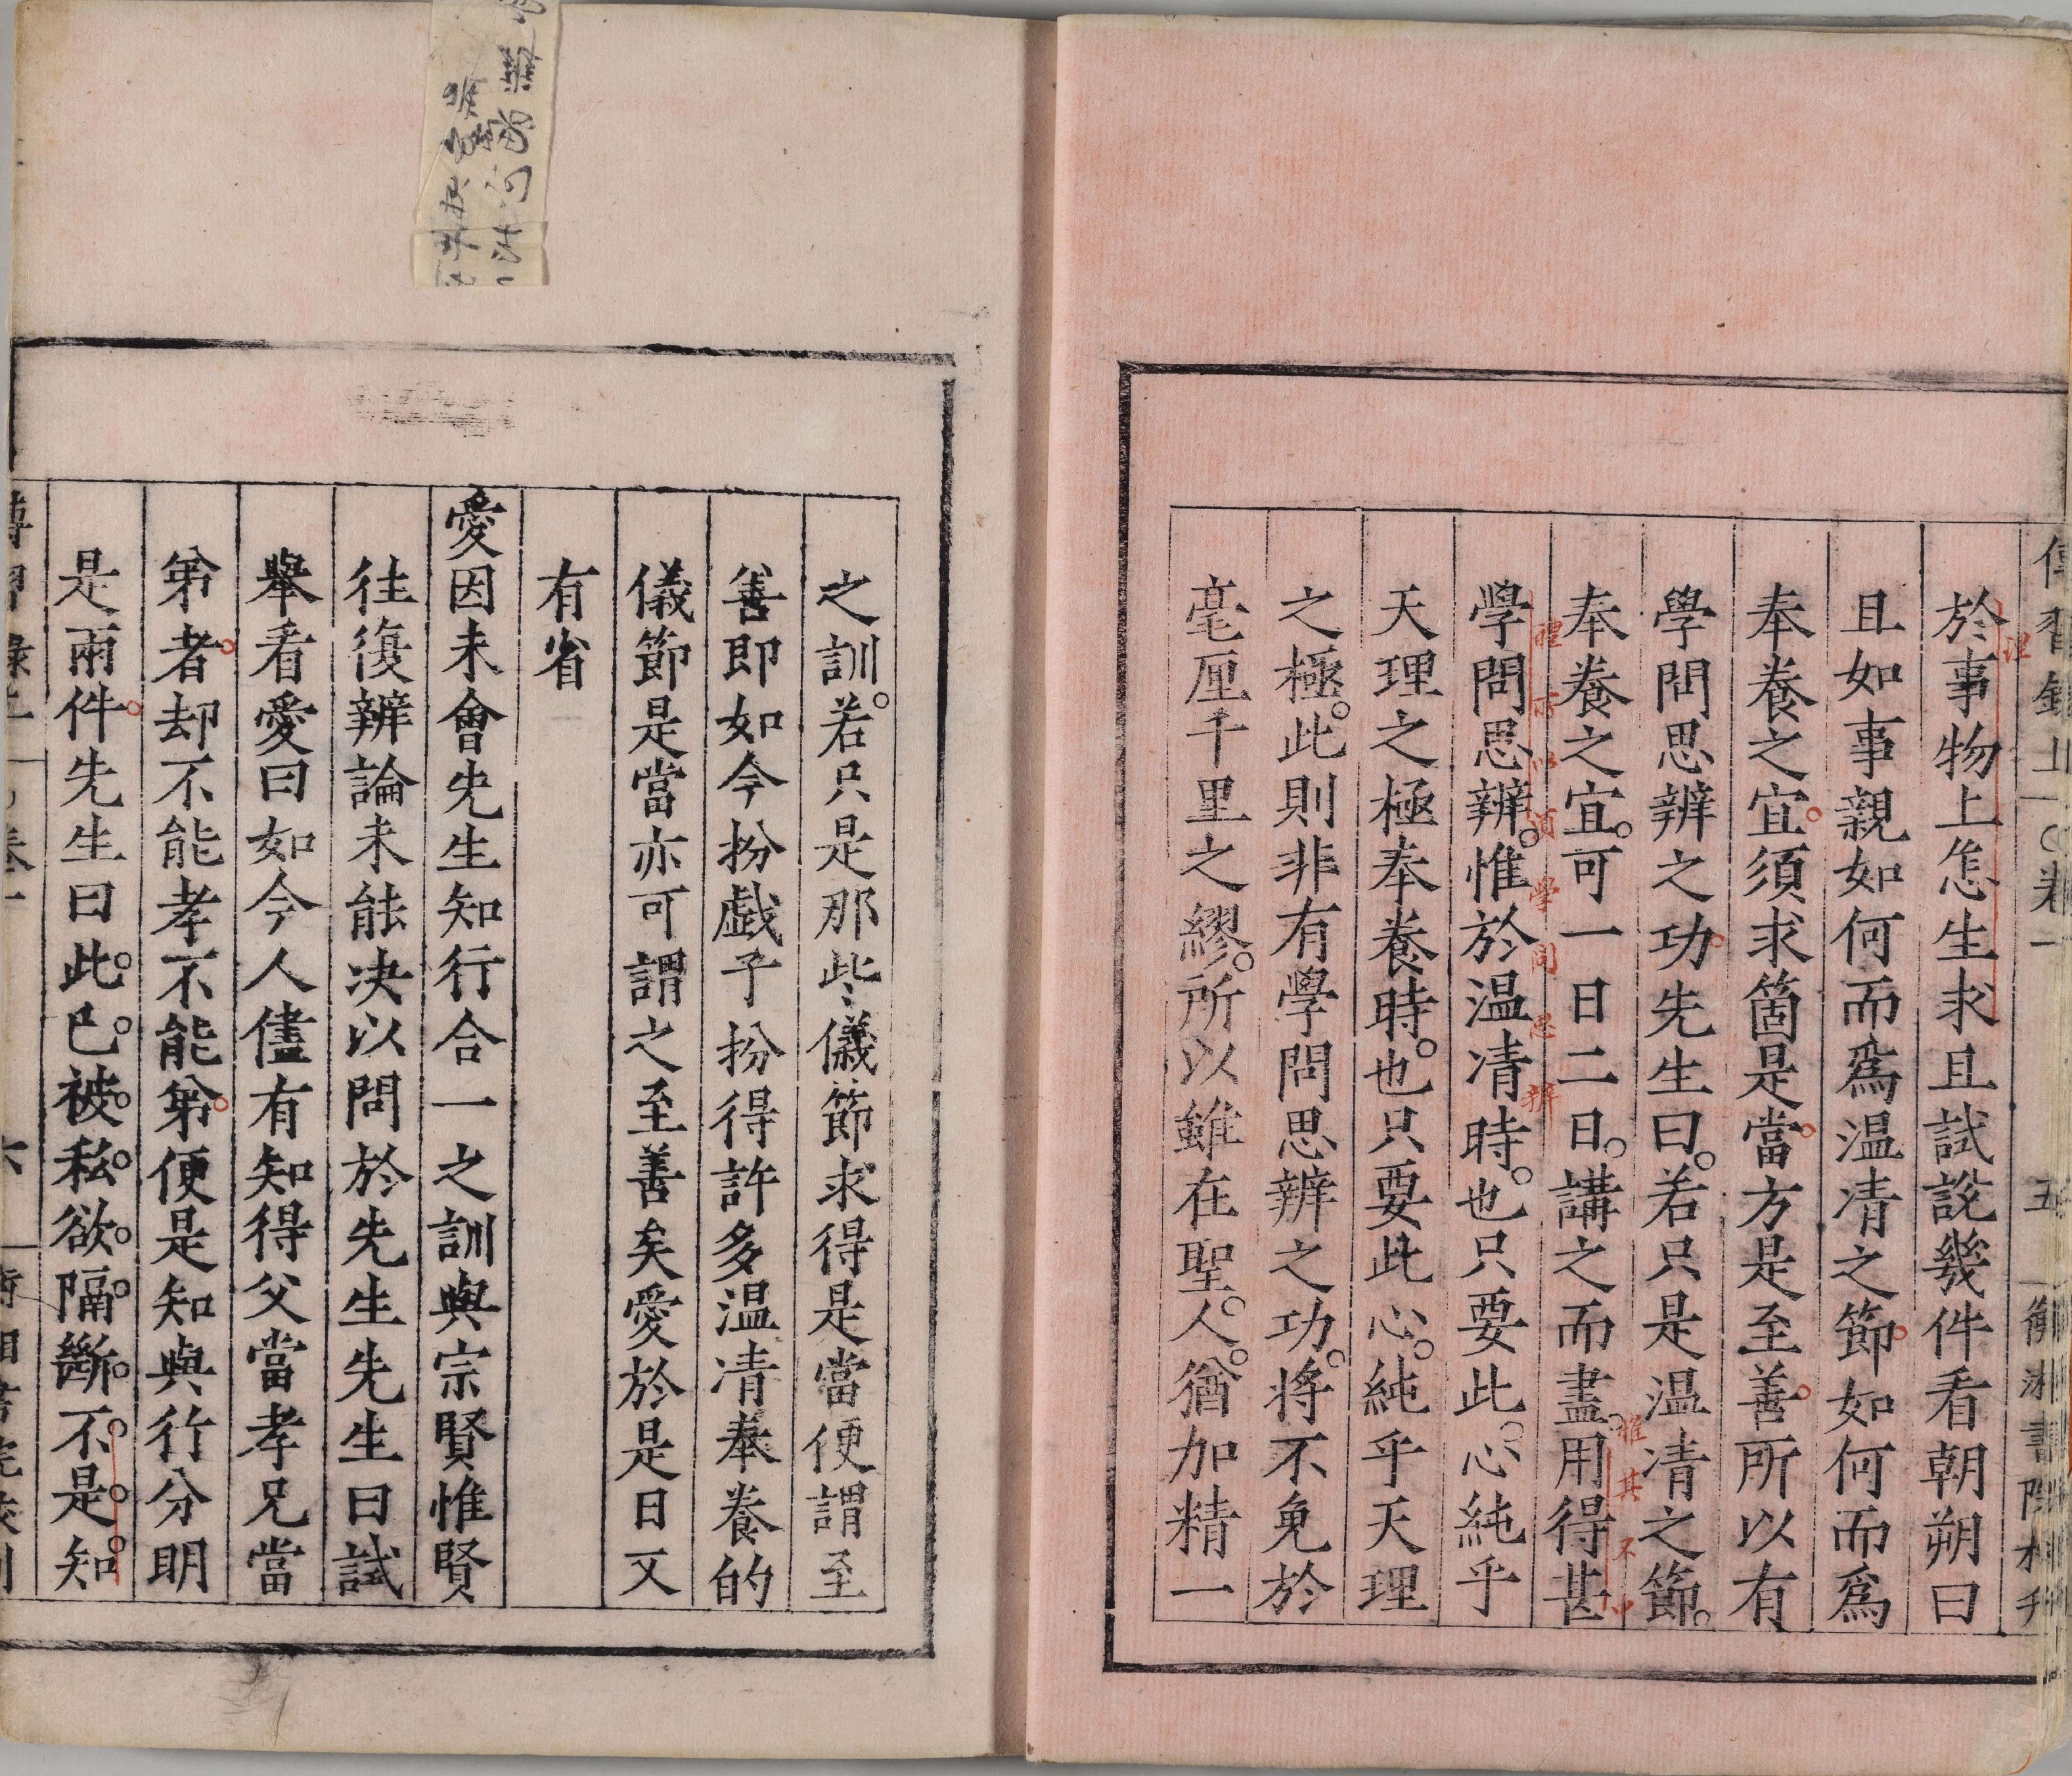 傳習錄上 卷一 五 衡湘書院校刋
於事物上怎生求且試說幾件看朝朔曰
且如事親如何而爲温凊之節如何而爲
奉養之宜須求箇是當方是至善所以有
學問思辨之功先生曰若只是温凊之節
奉養之宜可一日二日講之而盡用得甚
學問思辨惟於温凊時也只要此心純乎
天理之極奉養時也只要此心純乎天理
之極此則非有學問思辨之功將不免於
毫厘千里之繆所以雖在聖人猶加精一
理
推其不
學問思辨
之訓若只是那些儀節求得是當便謂至
善即如今扮戲子扮得許多温凊奉養的
儀節是當亦可謂之至善矣愛於是日又
有省
愛因未會先生知行合一之訓與宗賢惟賢
往復辨論未能决以問於先生先生曰試
舉看愛曰如今人儘有知得父當孝兄當
弟者却不能孝不能弟便是知與行分明
是兩件先生曰此已被私欲隔斷不是知
傳習錄上 卷一 六